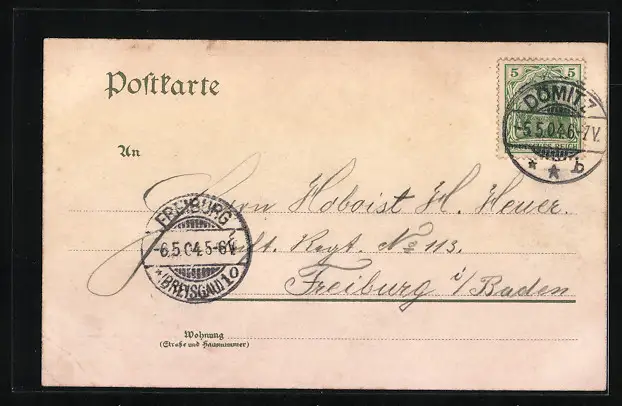 Postkarte
5 5
DÖMITZ
5.5.04.6-7V.
* * b
An
Herrn Hoboist H. Heuer.
Inft. Regt. No 113.
Freiburg i/Baden
FREIBURG
6.5.04.5-6V.
*(BREISGAU)1o
Wohnung
(Straße und Hausnummer)